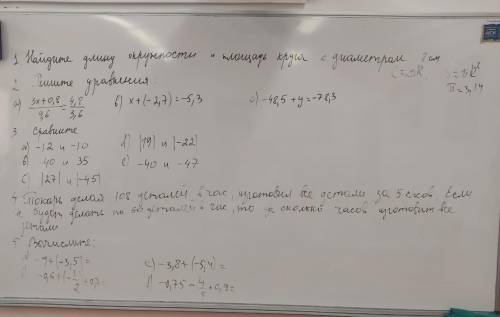 1 Найдите длину окружности и площадь круга с диаметром см
C=2πR S=πR²
π=3,14
2 Решите уравнения:
a) (3x+0,8)/9,6 = 4,8/3,6 b) x+(-2,7)=-5,3 c) -48,5+y=-78,3
3 Сравните
a) -12 и -10 d) |19| и |-22|
b) 40 и 35 e) -40 и -47
c) |27| и |-45|
4 Токарь делая 108 деталей в час, изготовил все детали за 5 часов. Если
он будет делать по деталей в час, то за сколько часов изготовит все
детали
5 Вычислите:
-9+(-3,5)= c) -3,8+(-5,4)=
-0,6+(-1/2)+0,7= -0,75-4/5+0,9=